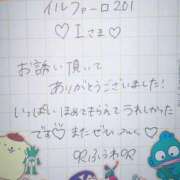 イルファーロ 201
♡Iさま♡
お誘い頂いて
ありがとうございました!
いっぱいほめてもらえてうれしかった
です♡またぜひ
ふうわ